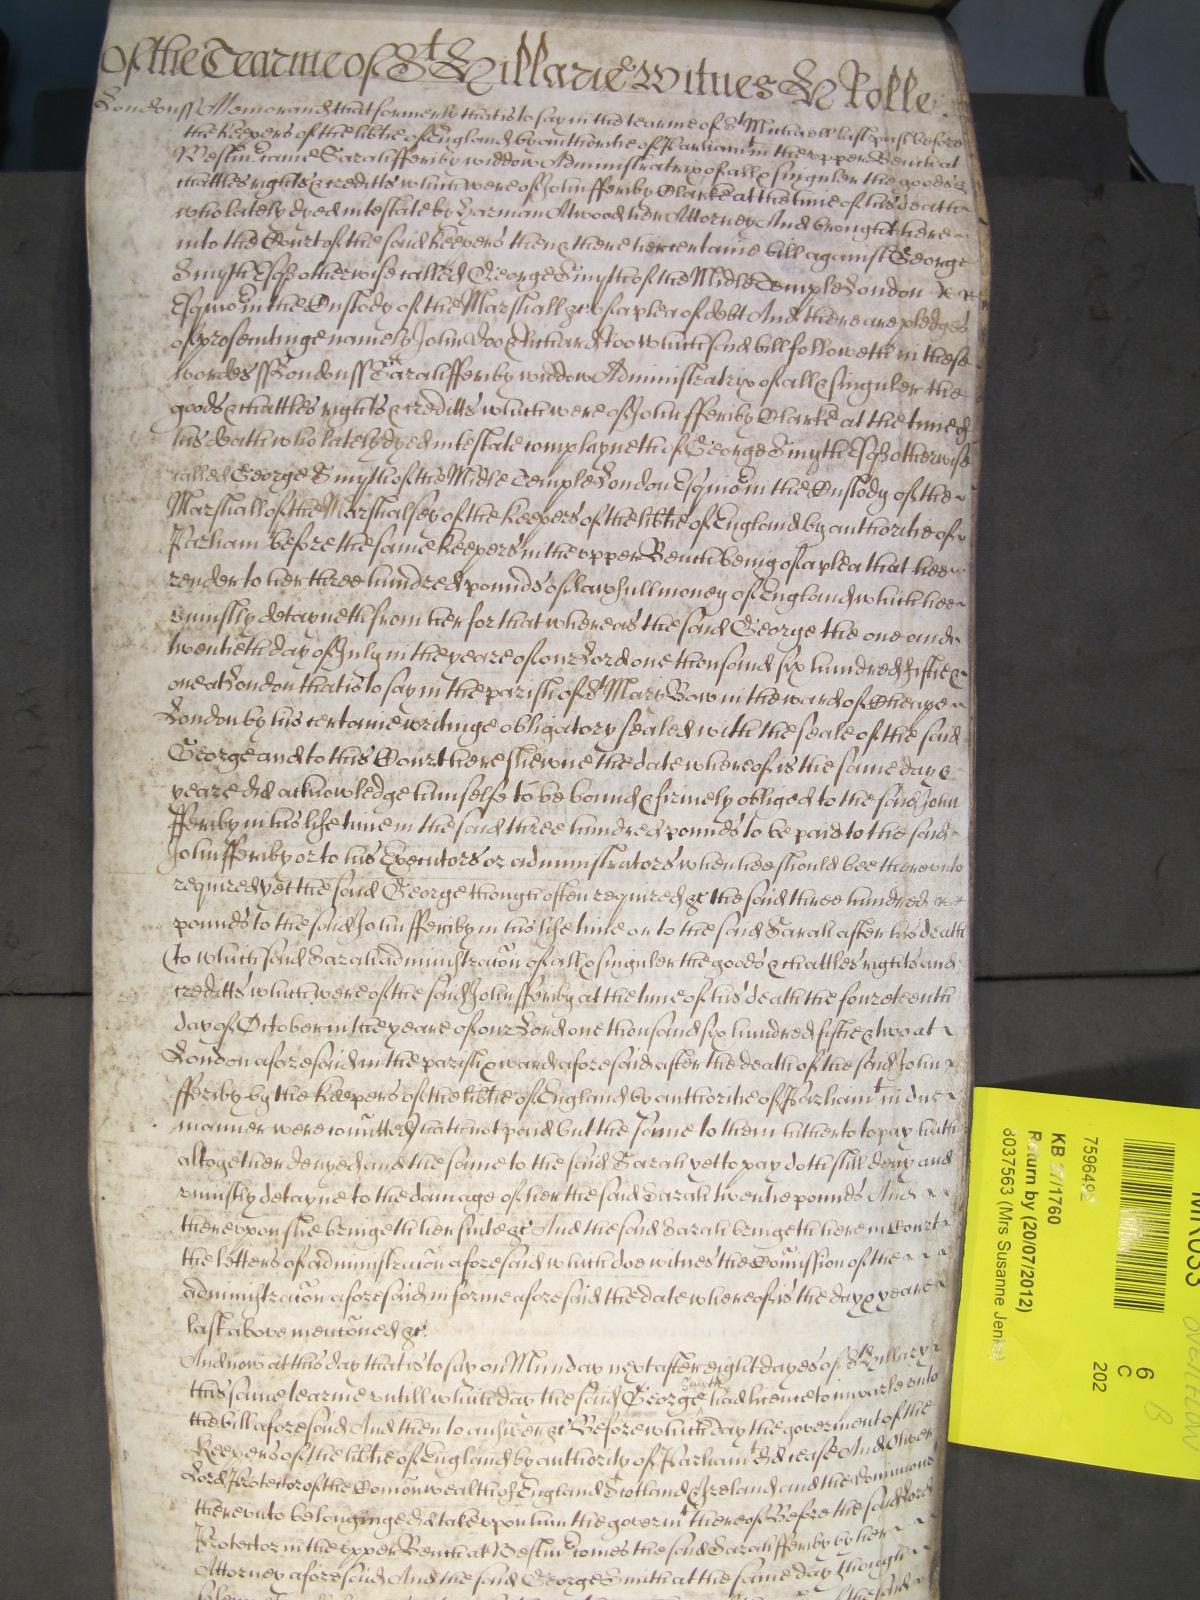 Of the Tearme of St Hillarie Witnes H Rolle
London ss Memorand that formerly that is to say in the tearme of St Michaell last past before
the Keepers of the libtie of England by authoritie of Parliamt in the upper Bench at
Westm came Sarah fferiby widdow Administratrix of all & singuler the goods &
chattles rights & creditts which were of John fferiby Clarke at the time of his death
who lately dyed intestate by Harman Atwood her Attorney And brought here
into the Court of the said Keepers then & there her certaine bill against George
Smyth Esqr otherwise called George Smyth of the Midle Temple London
Esquior in the Custody of the Marshall &c of a plea of debt And there are pledges
of prosecutinge namely John Doo & Richard Roo which said bill followeth in these
wordes ss London ss Sarah fferiby widdow Administratrix of all & singuler the
goods & chattles rights & creditts which were of John fferiby Clarke at the time of
his death who lately dyed intestate complayneth of George Smyth Esqr otherwise
called George Smyth of the Midle Temple London Esquior in the Custody of the
Marshall of the Marshalsey of the Keepers of the libtie of England by authoritie of
Parliam before the same Keepers in the upper Bench being of a plea that hee
render to her three hundred pounds of lawfull money of England which hee
uniustly detayneth from her for that whereas the said George the one and
twentieth day of July in the yeare of our Lord one thousand six hundred fiftie &
one at London that is to say in the parish of St Mary Bow in the ward of Cheape
London by his certaine writinge obligatory sealed with the seale of the said
George and to this Court here shewne the date whereof is the same day &
yeare did acknowledge himselfe to be bound & firmely obliged to the said John
fferiby in his life time in the said three hundred pounds to be paid to the said
John fferiby or to his Executors or administrators when hee should bee thereunto
required yet the said George though often required &c the said three hundred
pounds to the said John fferiby in his life time or to the said Sarah after his death
(to which said Sarah administracon of all & singuler the goods & chattles rights and
creditts which were of the said John fferiby at the time of his death the fourteenth
day of October in the yeare of our Lord one thousand six hundred fiftie & two at
London aforesaid in the parish & ward aforesaid after the death of the said John
fferiby by the Keepers of the libtie of England by authoritie of Parliamt in due
manner were comitted) hath not paid but the same to them hitherto to pay hath
altogether denyed and the same to the said Sarah yet to pay doth still deny and
uniustly detayne to the damage of her the said Sarah twentie pounds And
thereupon she bringeth her suite &c And the said Sarah bringeth here in Court
the letters of administracon aforesaid which doe witnes the Comission of the
administracon aforesaid in forme aforesaid the date whereof is the day & yeare
last above menconed &c
And now at this day that is to say on Munday next after eight dayes of St Hillary
this same tearme untill which day the said George Smyth had licence to imparle unto
the bill aforesaid And then to answer &c Before which day the goverment of the
Keepers of the libtie of England by authority of Parliamt did cease And Oliver
Lord Protector of the Comonwealth of England Scotland & Ireland and the Dominions
thereunto belonginge did take upon him the govermt thereof Before the said Lord
Protector in the upper Bench at Westm comes the said Sarah fferiby by her
Attorney aforesaid And the said George Smith at the same day though
7596492
KB 27/1760
Return by (20/07/2012)
6
C
202